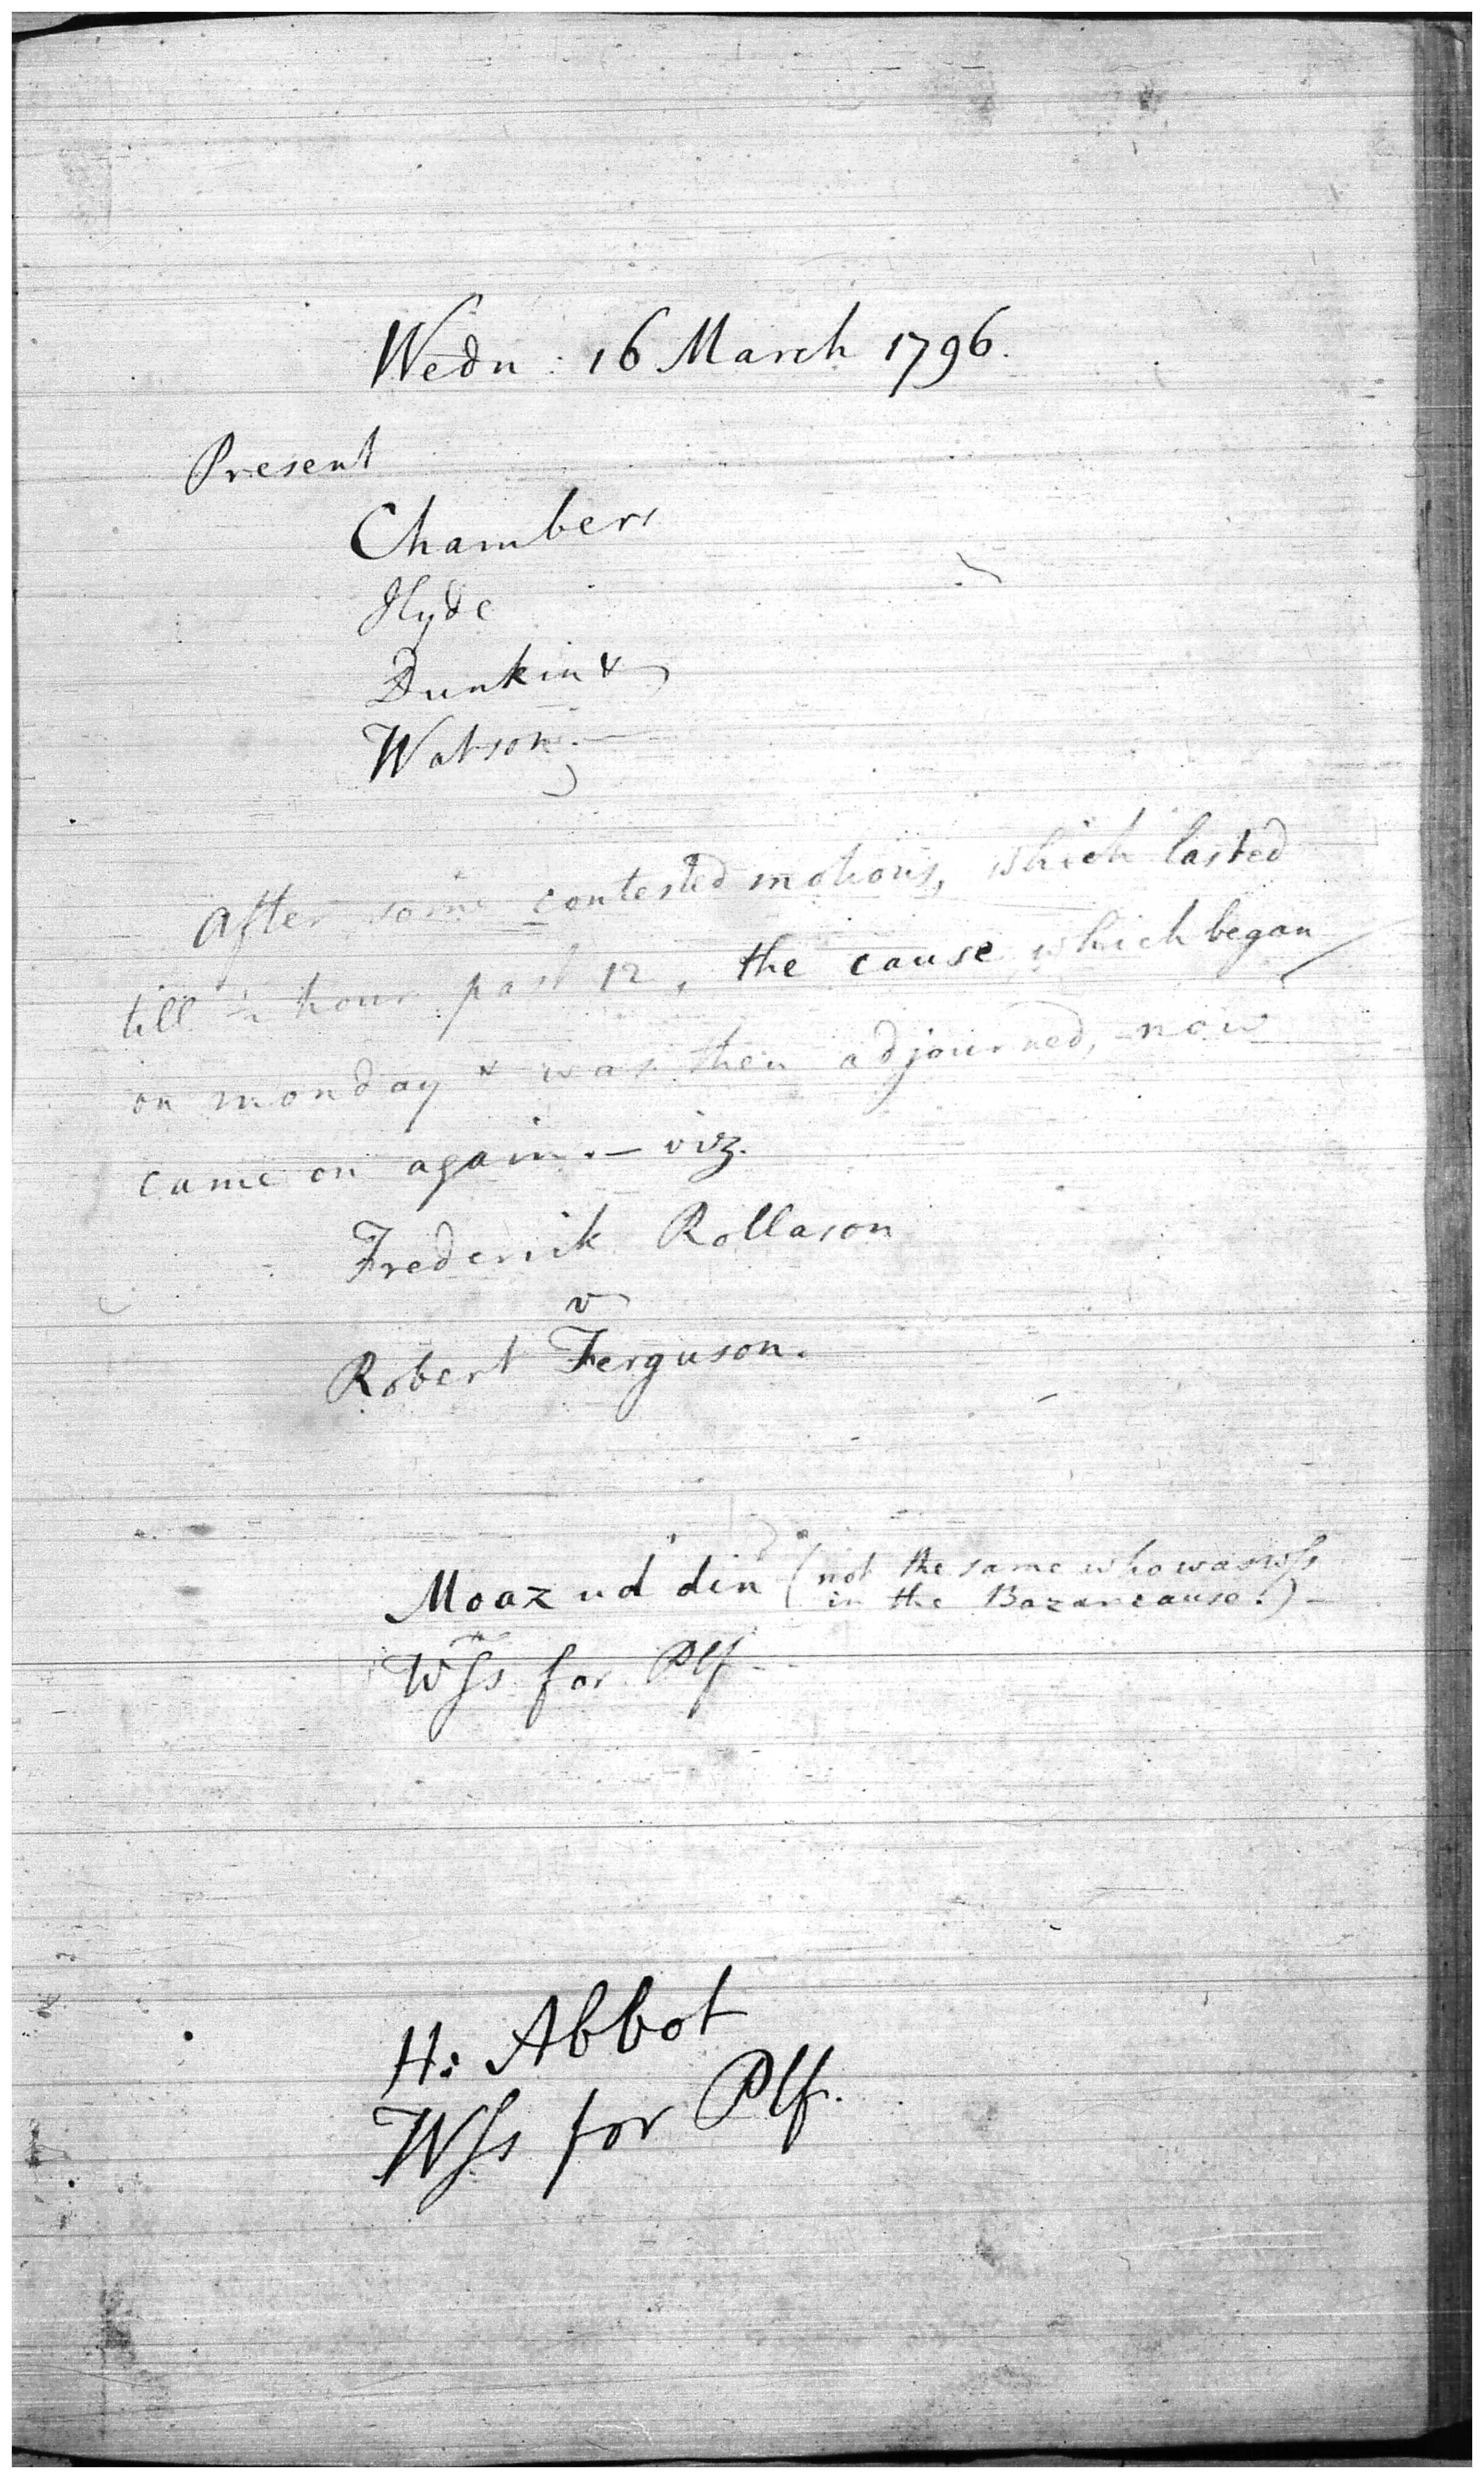 Wedn: 16 March 1796.
Present
Chambers
Hyde
Dunkin &
Watson.—
After some contested motions, which lasted
till ½ hour past 12, the cause which began
on monday & was then adjourned, now
came on again.— viz.
Frederick Rollason
v
Robert Ferguson.
Moaz ud din (not the same who was Wſs
in the Bazar cause.)—
Wſs for Plf
H: Abbot
Wſs for Plf.